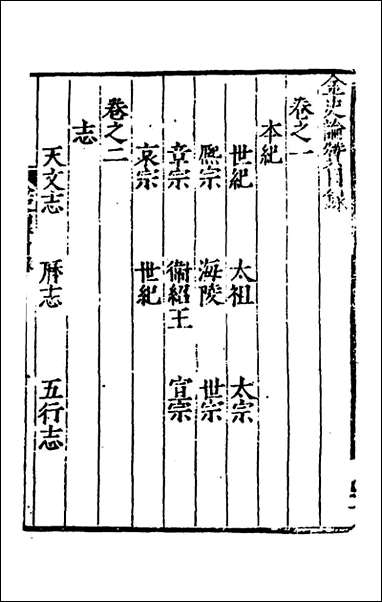 金史論贊目錄
卷之一
本紀
世紀 太祖 太宗
熙宗 海陵 世宗
章宗 衞紹王 宣宗
哀宗 世紀
卷之二
志
天文志 曆志 五行志